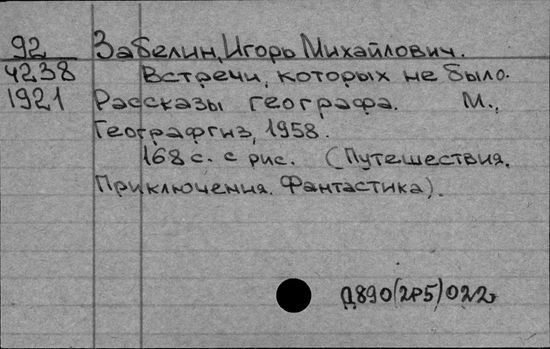 92 Забелин, Игорь Михайлович.
4238 Встречи, которых не было.
1921 Рассказы географа. М.,
Географгиз, 1958.
168 с. с рис. (Путешествия.
Приключения. Фантастика).
Д890(2Р5)022